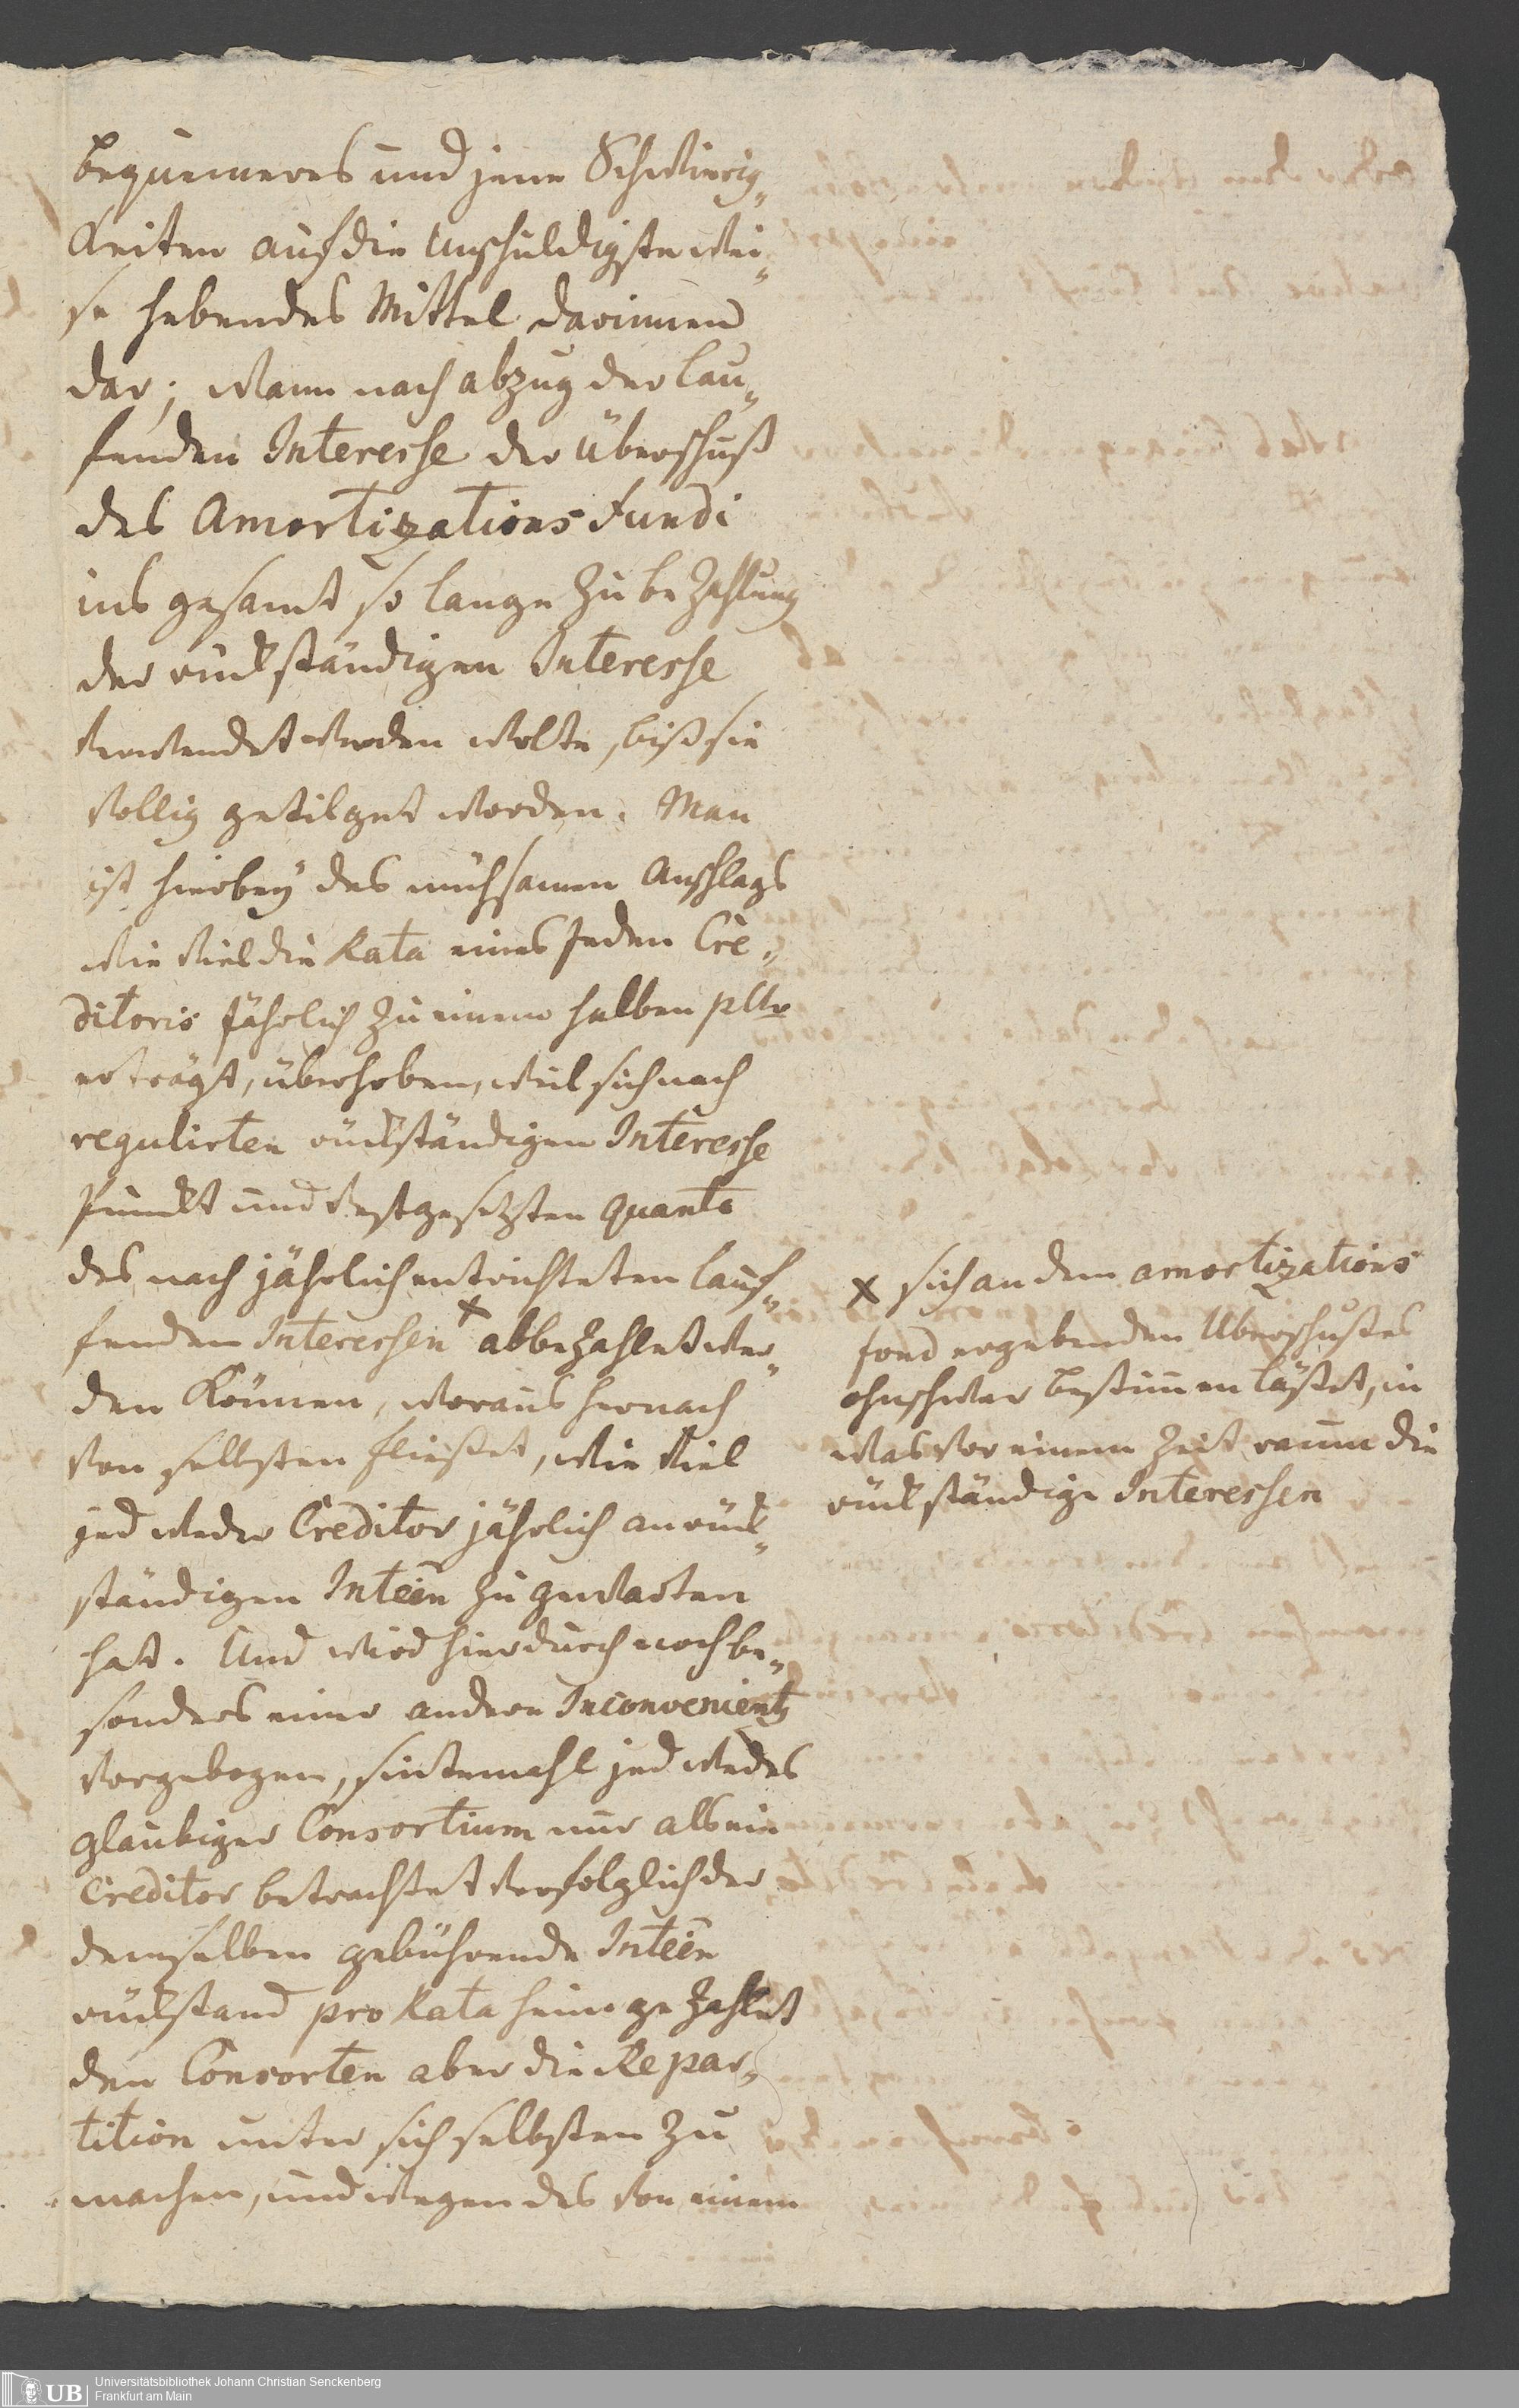 bequemeres und jene Schwierig„
keiten auf die unschuldigste wei„
se hebendes Mittel darinnen
dar; wann nach abzug der lau„
fenden Interesse der Überschuß
des Amortizations Fundi
ins gesamt so lange zu bezahlung
der rückständigen Interesse
verwendet werden wolte, biß sie
völlig getilget worden. Man
ist hierbey des mühsamen Anschlags
wie viel die Rata eines Jeden Cre„
ditoris jährlich zu einem halben
erträgt, überhoben, weil sich nach
regulirten rückständigen Interesse
Punckt und vestgesetzten quanto
des nach jährlich entrichteten lauf„
fenden Interessen x abbezahlet wer„
den können, woraus hernach
von selbsten fließet, wie viel
jedweder Creditor jährlich an rück„
ständigen Inteēn zu gewarten
hat. Und wird hierdurch noch be„
sonders einer andern Inconvenientz
vorgebogen, sintemahl jedwedes
glaubiger Consortium nur als ein
Creditor betrachtet verfolglich der
demselben gebührende Inteēn
rückstand pro Rata heimgezahlet
den Consorten aber die Repar„
tition unter sich selbsten zu
machen, und wegen des von einem
x sich an dem amortizations
fond ergebenden Uberschußes
ohnschwer bestimen läßet, in
was vor einem Zeit raum die
rückständige Interessen
Universitätsbibliothek Johann Christian Senckenberg
Frankfurt am Main
UB